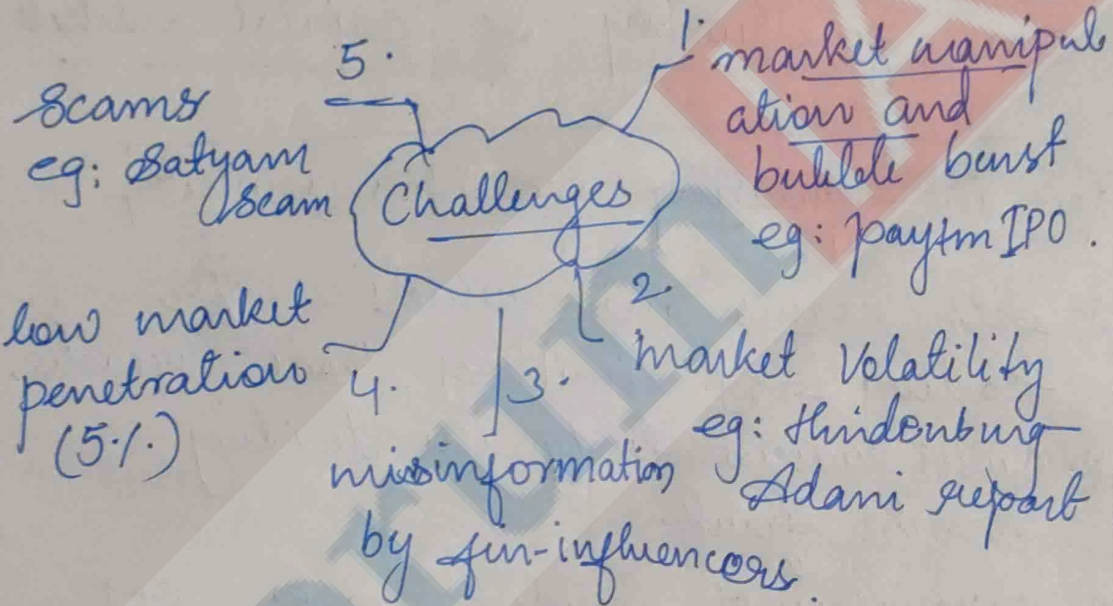 Challenges
1. market manipul
ation and
bubble burst
eg: paytm IPO.
2.
market Volatility
eg: Hindenburg
Adani report
3.
misinformation
by fin-influencers.
4.
low market
penetration
(5%)
5.
Scams
eg: Satyam
Scam